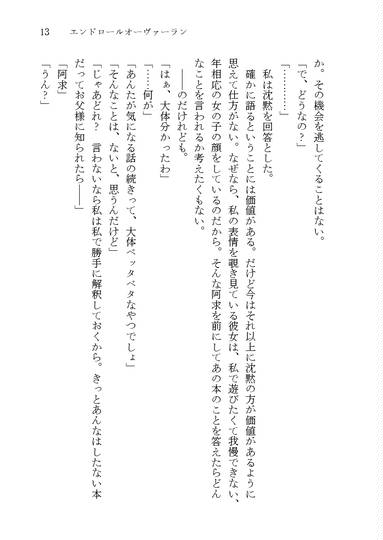 13　エンドロールオーヴァーラン
か。その機会を逃してくることはない。
「で、どうなの?」
「…………」
私は沈黙を回答とした。
確かに語るということには価値がある。だけど今はそれ以上に沈黙の方が価値があるように
思えて仕方がない。なぜなら、私の表情を覗き見ている彼女は、私で遊びたくて我慢できない、
年相応の女の子の顔をしているのだから。そんな阿求を前にしてあの本のことを答えたらどん
なことを言われるか考えたくもない。
――のだけれども。
「はぁ、大体分かったわ」
「……何が」
「あんたが気になる話の続きって、大体ベッタベタなやつでしょ」
「そんなことは、ないと、思うんだけど」
「じゃあどれ?　言わないなら私は私で勝手に解釈しておくから。きっとあんなはしたない本
だってお父様に知られたら――」
「阿求」
「うん?」